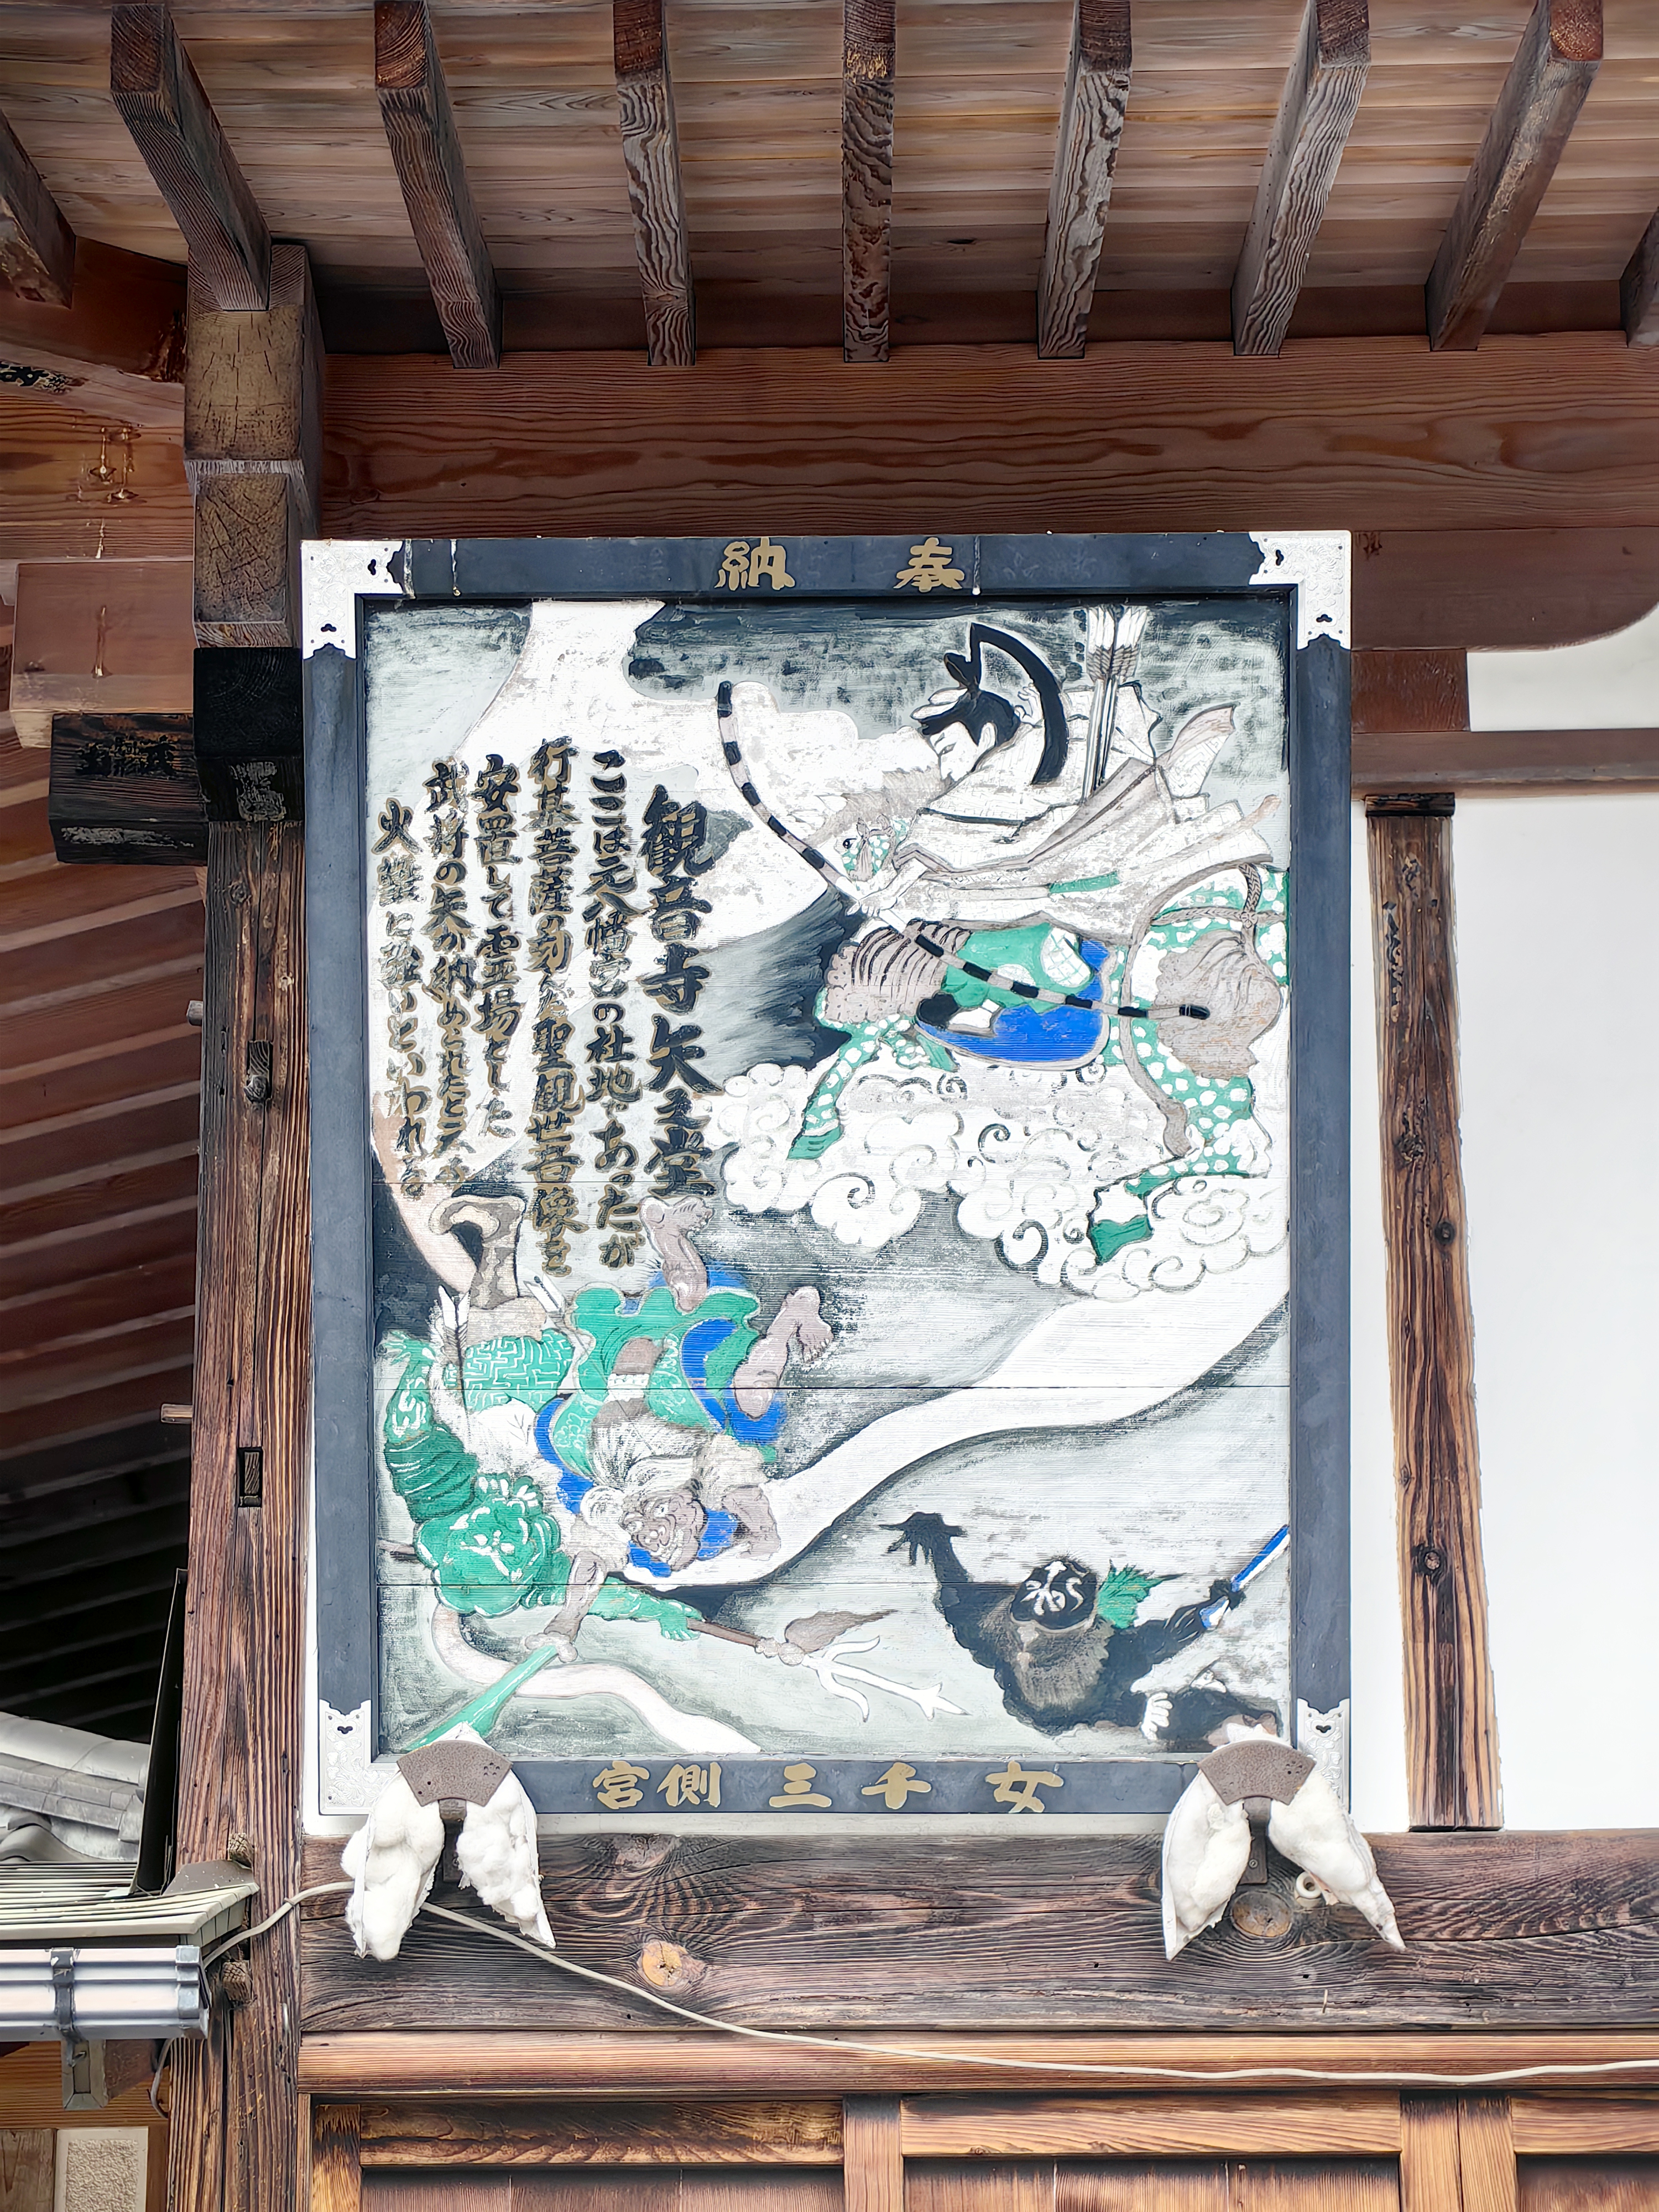 奉納
観音寺矢之堂
ここは元八幡宮の社地であったが
行基菩薩の刻んだ聖観世音像を
安置して霊場とした
武将の矢が納められたと云ふ
火難に強いといわれる
女千三側宮